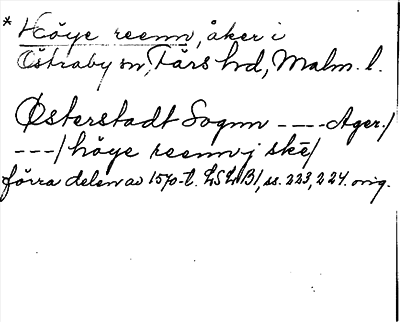 * Höye reenn, åker i
Östraby sn, Färs hd, Malm. l.
Østerstadt Sognn ---- Ager./
---/ höye reenn j skē/
förra delen av 1570-t. LSLAB1, ss. 223, 224. orig.